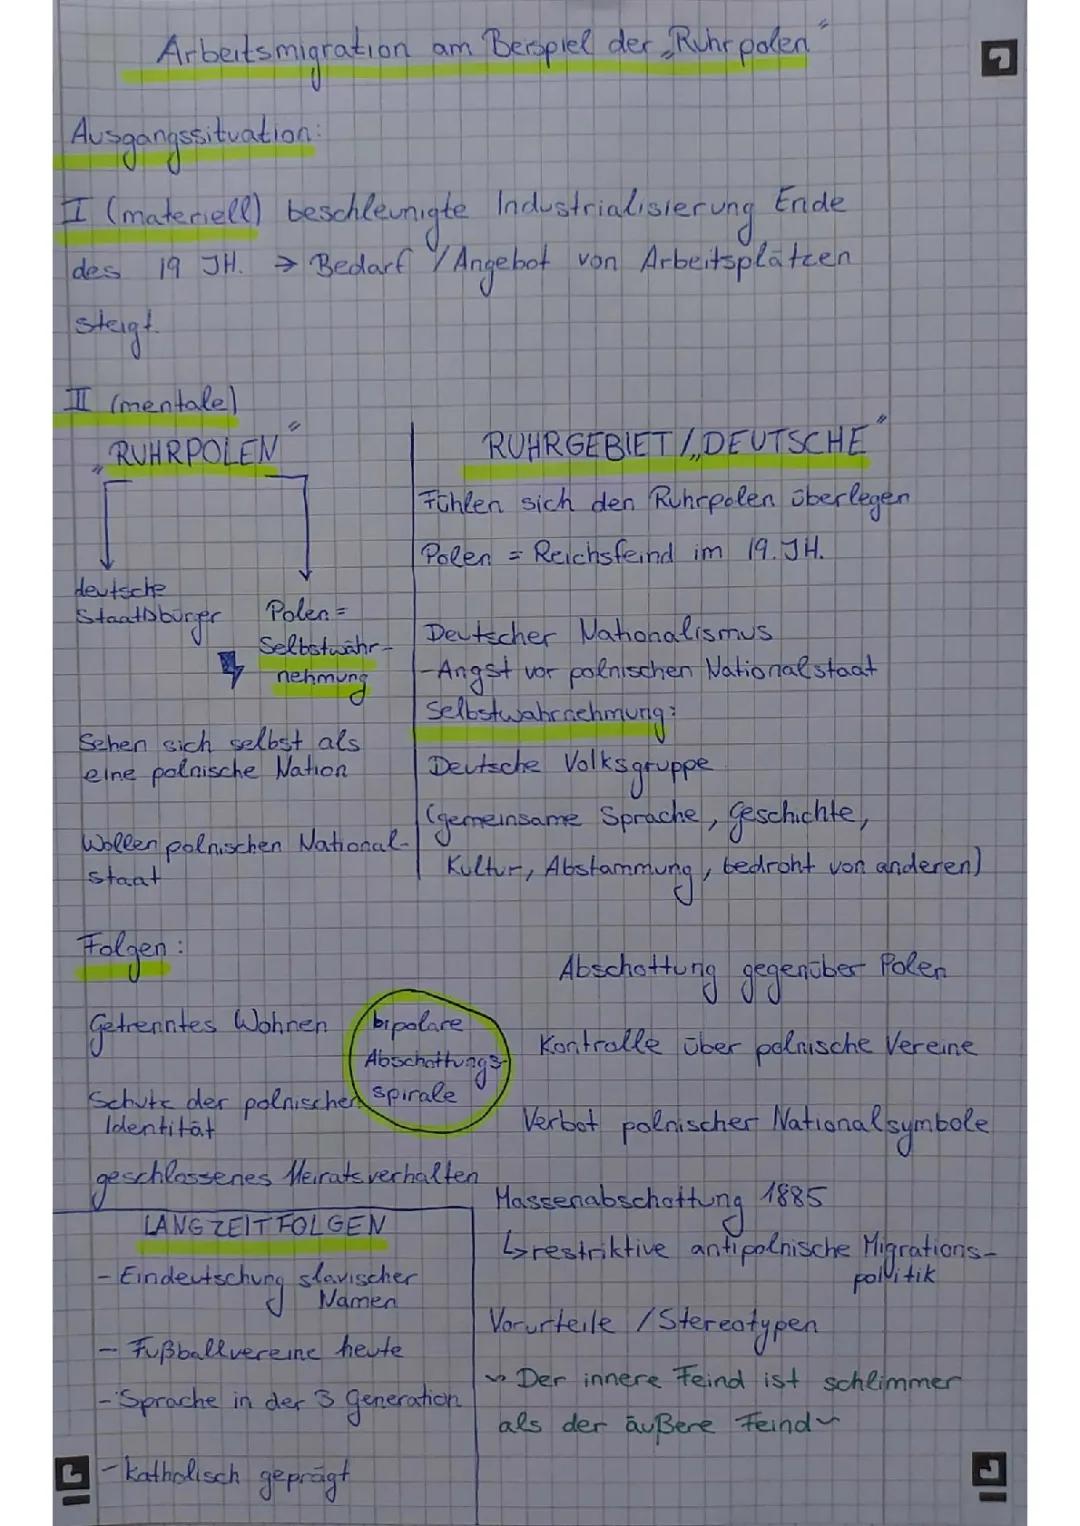 Arbeitsmigration am Beispiel der „Ruhrpolen“
Ausgangssituation:
I (materiell) beschleunigte Industrialisierung Ende
des 19 JH. → Bedarf / Angebot von Arbeitsplätzen
steigt.
II (mentale)
„RUHRPOLEN“
deutsche
Staatsbürger
Polen =
Selbstwahr-
nehmung
Sehen sich selbst als
eine polnische Nation
Wollen polnischen National-
staat
RUHRGEBIET / „DEUTSCHE“
Fühlen sich den Ruhrpolen überlegen
Polen = Reichsfeind im 19. JH.
Deutscher Nationalismus
- Angst vor polnischen Nationalstaat
Selbstwahrnehmung:
Deutsche Volksgruppe
(gemeinsame Sprache, Geschichte,
Kultur, Abstammung, bedroht von anderen)
Folgen:
Getrenntes Wohnen
Schutz der polnischen
Identität
geschlossenes Heiratsverhalten
bipolare
Abschottungs-
spirale
Abschottung gegenüber Polen
Kontrolle über polnische Vereine
Verbot polnischer Nationalsymbole
Massenabschottung 1885
↳ restriktive antipolnische Migrations-
politik
Vorurteile / Stereotypen
~ Der innere Feind ist schlimmer
als der äußere Feind ~
LANGZEITFOLGEN
- Eindeutschung slavischer
Namen
- Fußballvereine heute
- Sprache in der 3 Generation
- katholisch geprägt